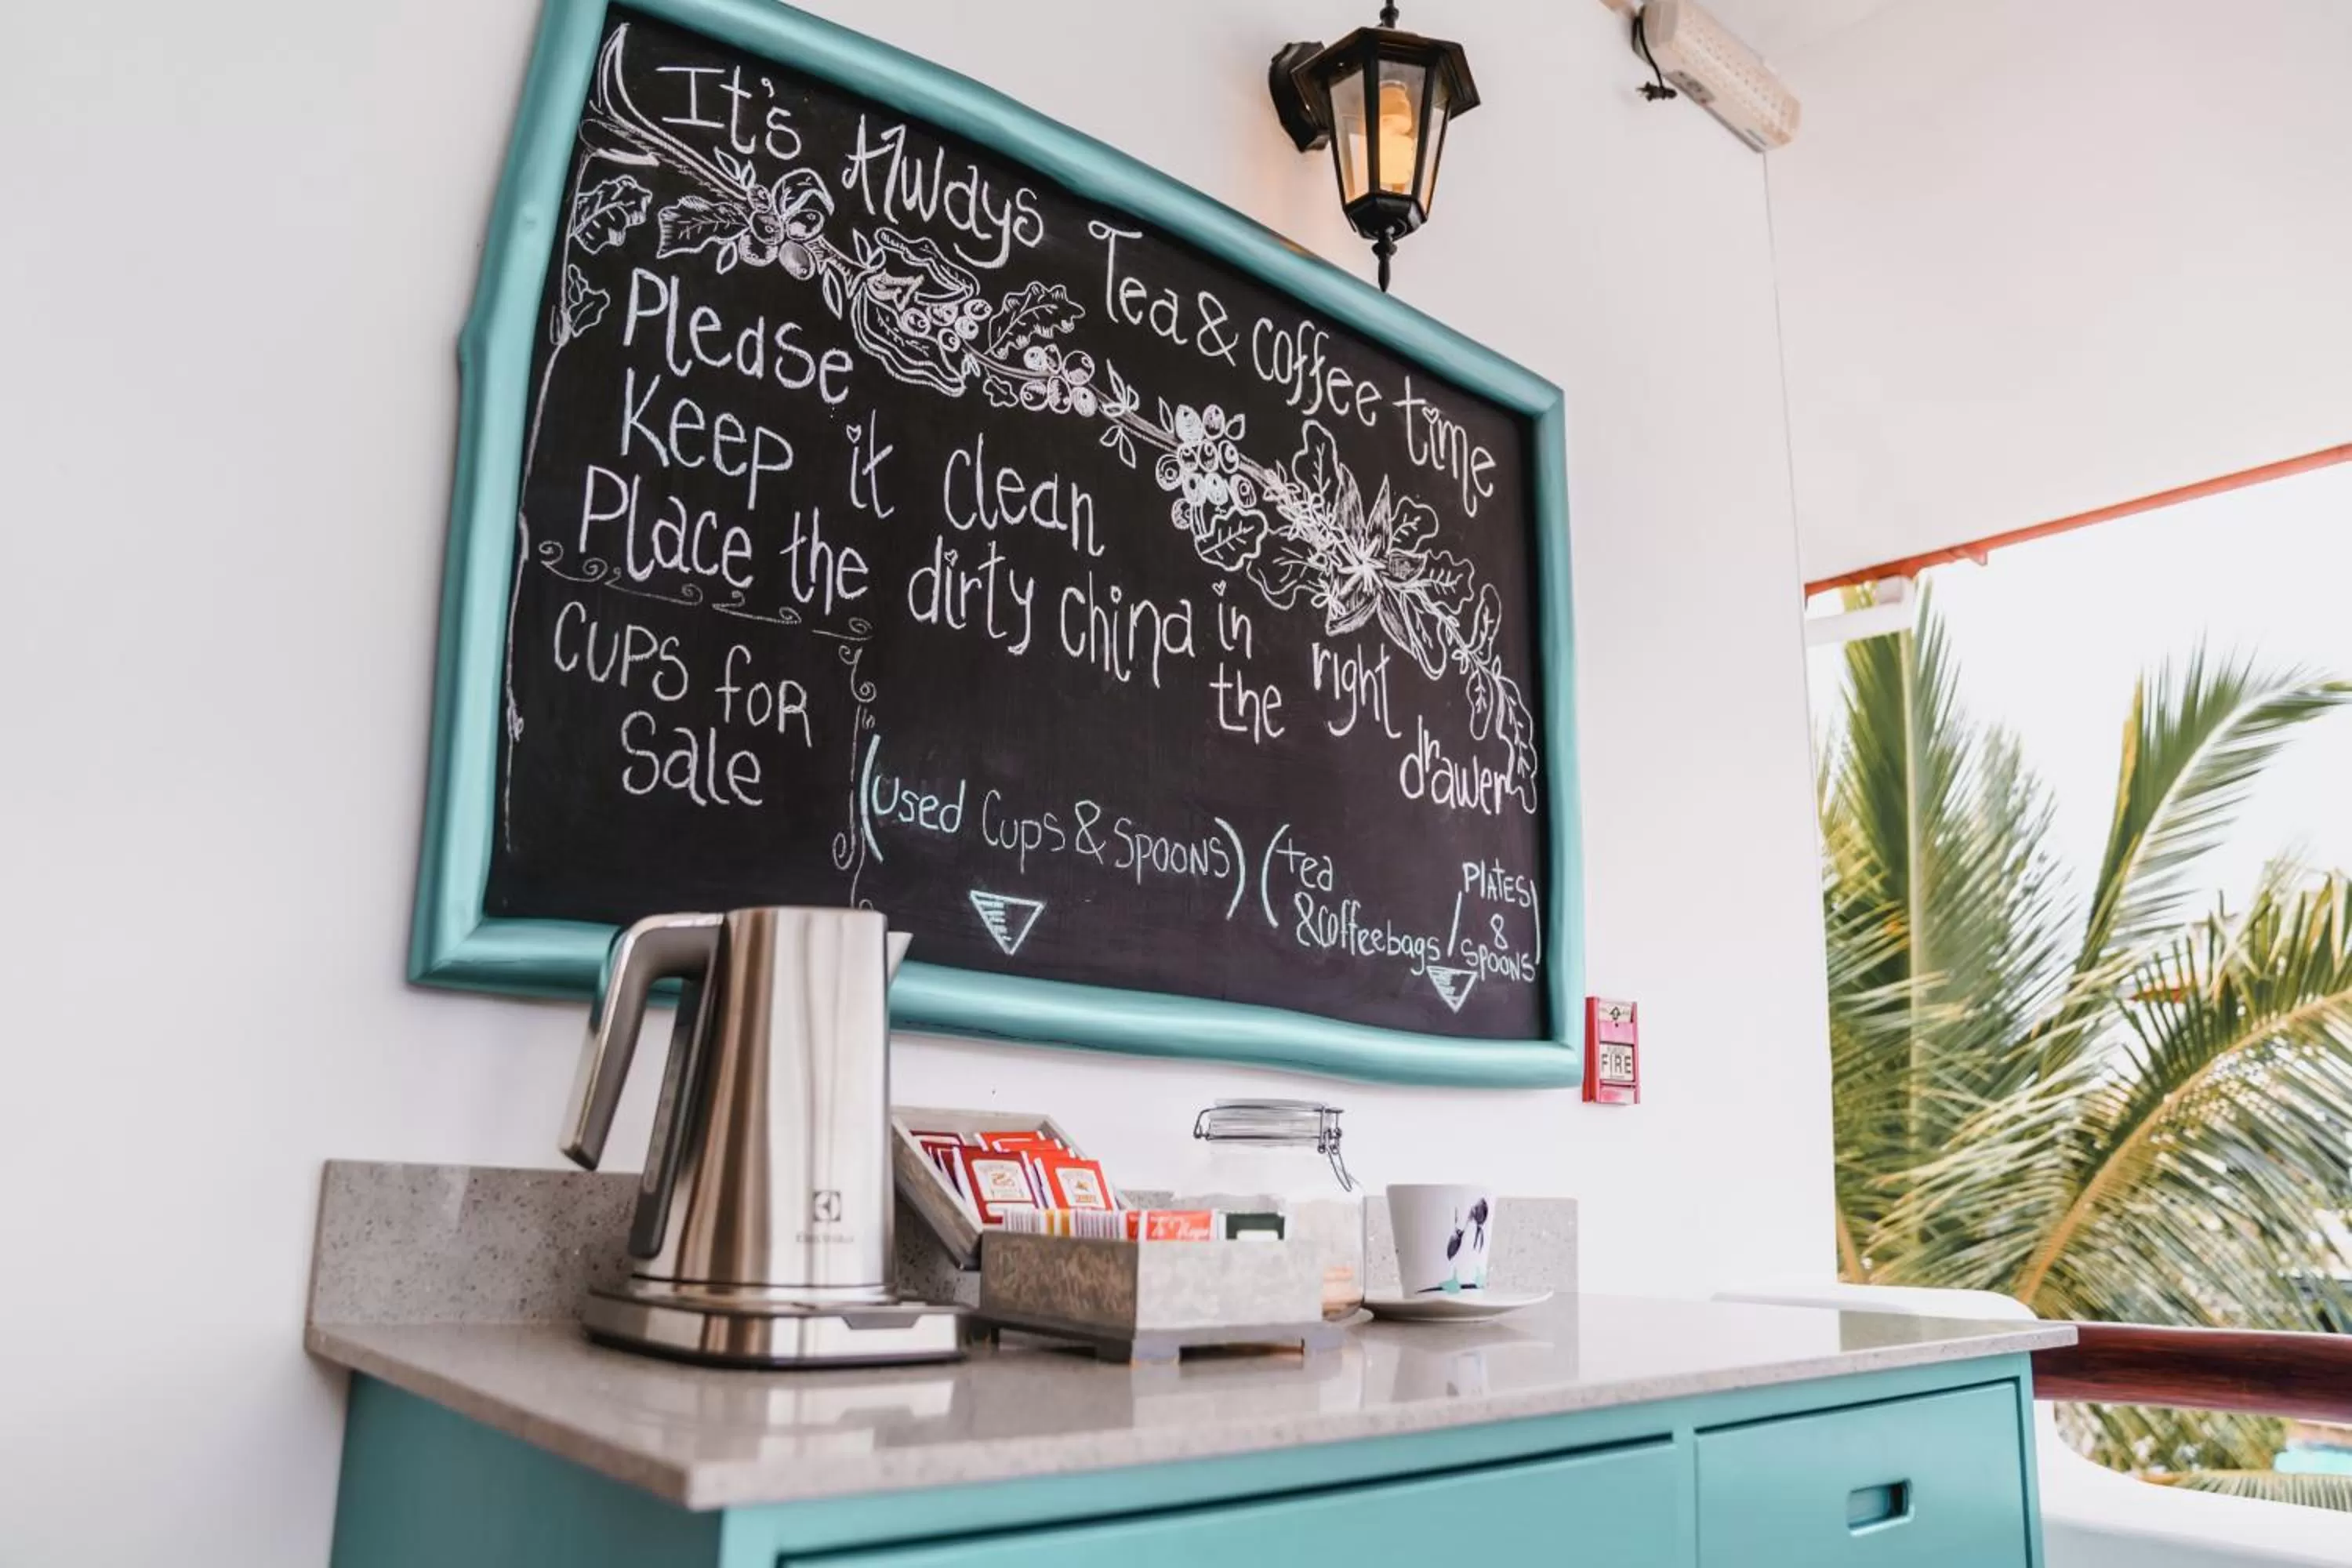 It's Always Tea & coffee time
Please
Keep it clean
Place the dirty china in the right drawer
CUPS foR
Sale
(used Cups & SPOONS)
(tea
& Coffeebags /
PlATES
&
SPOONS)
FIRE
Electrolux